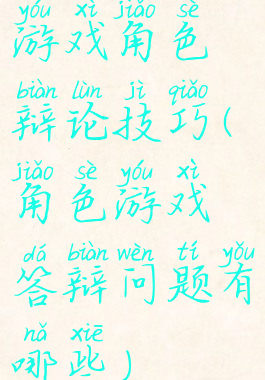 yóu xì jiǎo sè
游戏角色
biàn lùn jì qiǎo
辩论技巧(
jiǎo sè yóu xì
角色游戏
dá biàn wèn tí yǒu
答辩问题有
nǎ xiē
哪些)